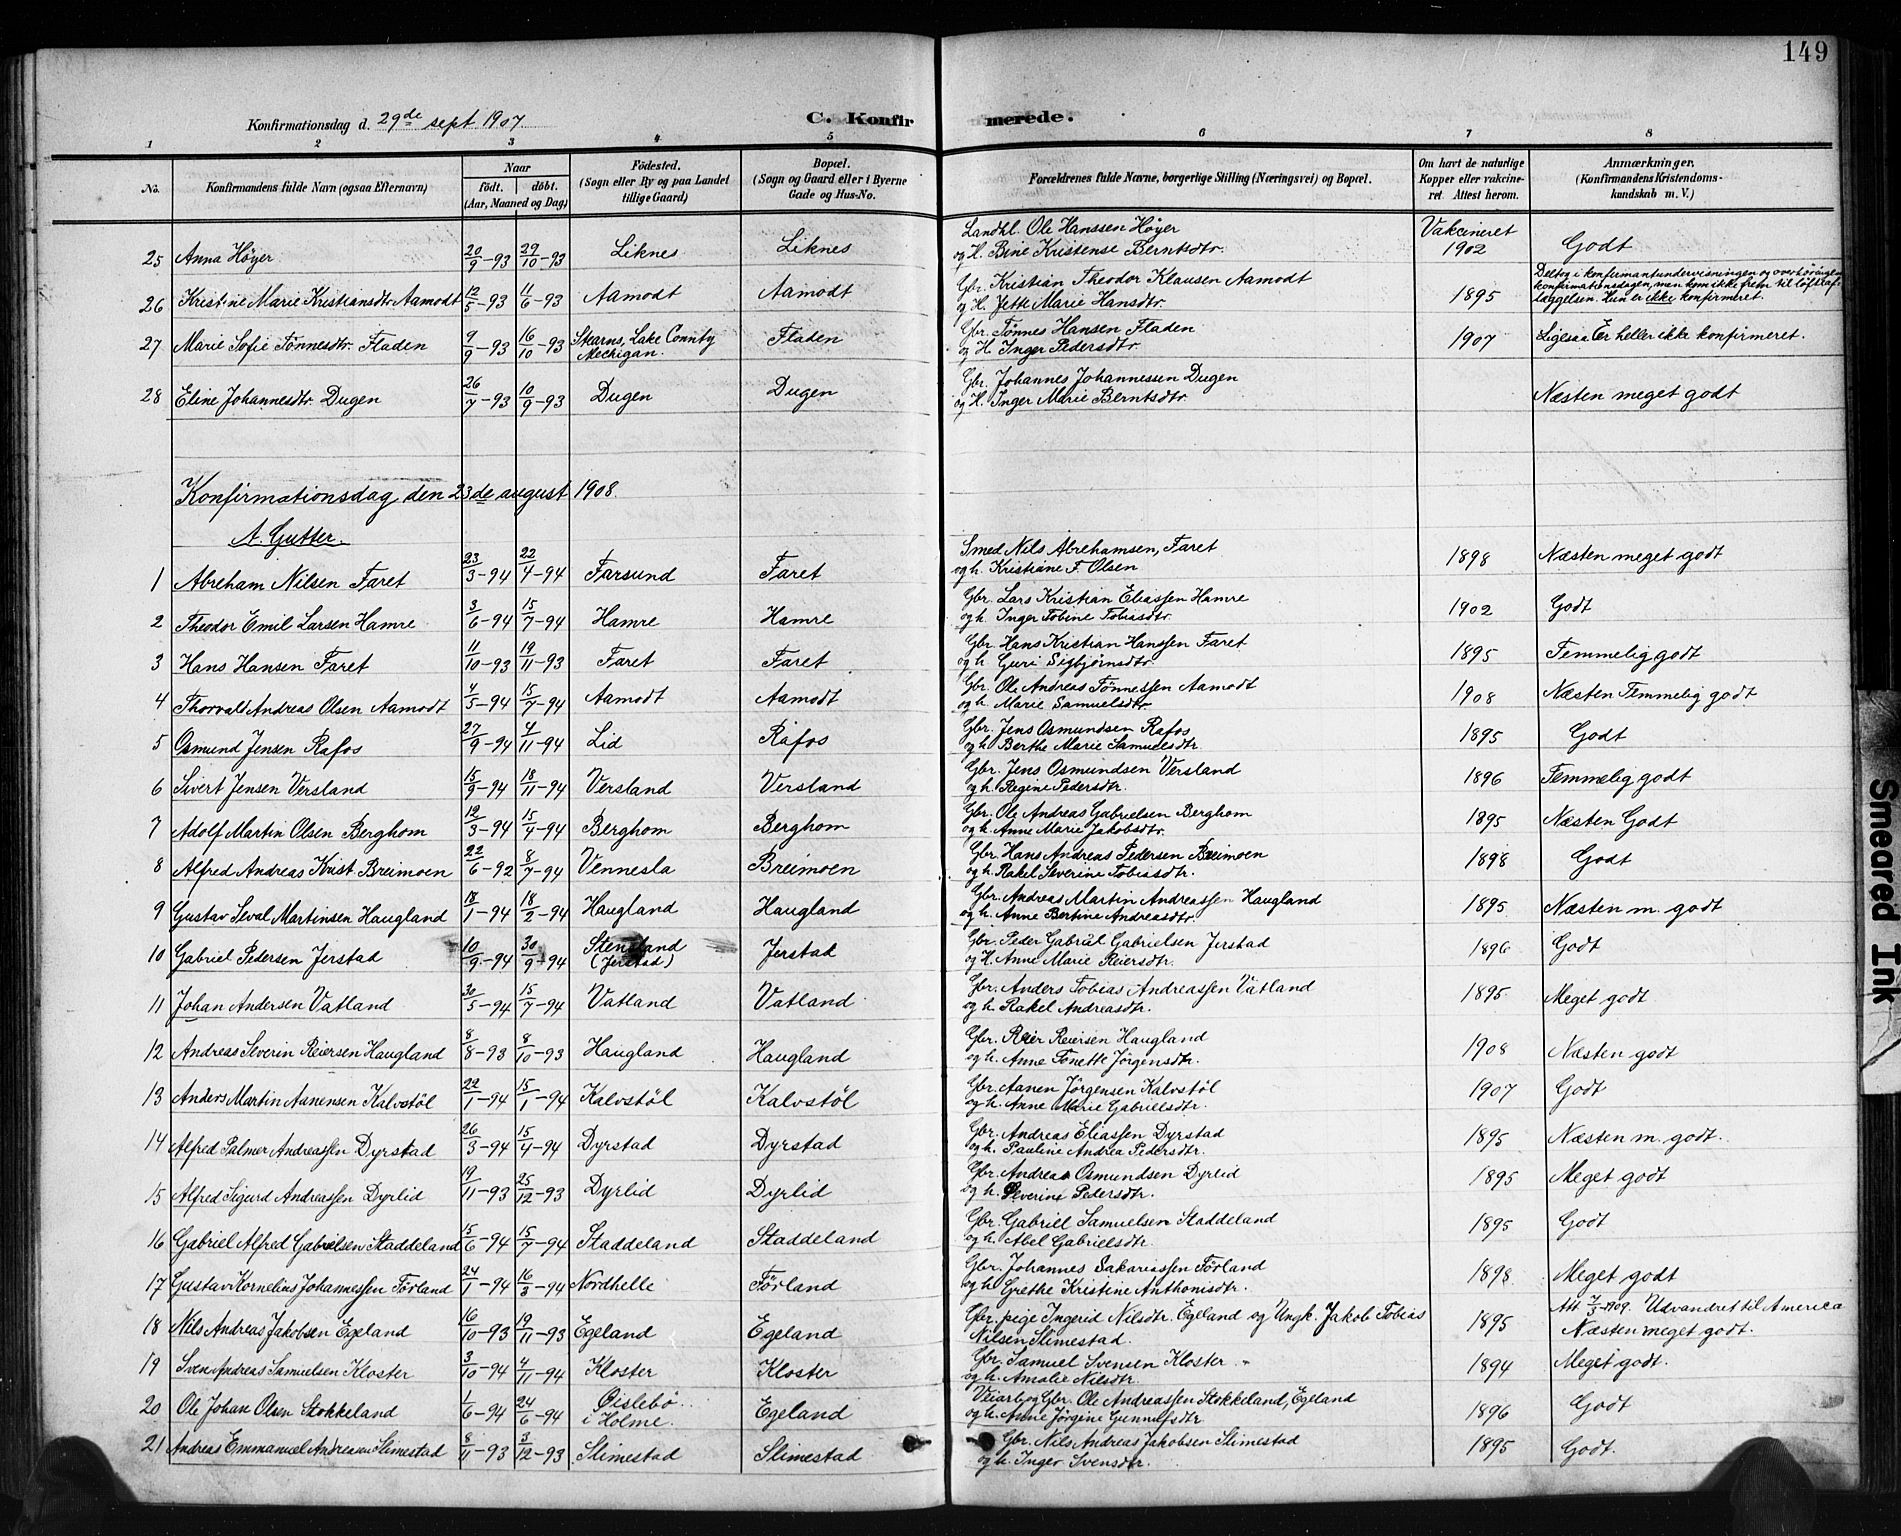 149
Konfirmationsdag d. 29de sept. 1907
C. Konfirmerede.
1 2 3 4 5 6 7 8
No. Konfirmandens fulde Navn (ogsaa Efternavn) Naar født. døbt. (Aar, Maaned og Dag) Fødested. (Sogn eller By og paa Landet tillige Gaard) Bopæl. (Sogn og Gaard eller i Byerne Gade og Hus-No. Forældrenes fulde Navne, borgerlige Stilling (Næringsvei) og Bopæl. Om havt de naturlige Kopper eller vakcineret. Attest herom. Anmærkninger. (Konfirmandens Kristendomskundskab m. V.)
25 Anna Høyer 20/9-93 29/10-93 Liknes Liknes Landhl. Ole Hanssen Høyer og H. Bine Kristense Berntsdtr. Vakcineret 1902 Godt
26 Kristine Marie Kristiansdtr. Aamodt 12/5-93 11/6-93 Aamodt Aamodt Gbr. Kristian Theodor Klausen Aamodt og H. Jette Marie Hansdtr. 1895 Deltog i konfirmantundervisningen og overhøringen konfirmationsdagen, men kom ikke frem til løftsaflæggelsen. Hun er ikke konfirmeret.
27 Marie Sofie Tønnesdtr. Fladen 9/9-93 16/10-93 Stearns, Lake Connty Mechigan. Fladen Gbr. Tønnes Hansen Fladen og H. Inger Pedersdtr. 1907 Ligesaa Er heller ikke konfirmeret.
28 Eline Johannesdtr. Dugen 26/7-93 10/9-93 Dugen Dugen Gbr. Johannes Johannessen Dugen og H. Inger Marie Berntsdtr. Næsten meget godt
Konfirmationsdag den 23de august 1908.
A. Gutter.
1 Abreham Nilsen Faret 23/3-94 22/4-94 Farsund Faret Smed Nils Abrehamsen, Faret og h. Kristiane F. Olsen 1898 Næsten meget godt
2 Theodor Emil Larsen Hamre 3/6-94 15/7-94 Hamre Hamre Gbr. Lars Kristian Eliassen Hamre og h. Inger Tobine Tobiasdtr. 1902 Godt
3 Hans Hansen Faret 11/10-93 19/11-93 Faret Faret Gbr. Hans Kristian Hanssen Faret og h. Guri Sigbjørnsdtr. 1895 Temmelig godt
4 Thorvald Andreas Olsen Aamodt 4/5-94 15/7-94 Aamodt Aamodt Gbr. Ole Andreas Tønnessen Aamodt og h. Marie Samuelsdtr. 1908 Næsten Temmelig godt
5 Osmund Jensen Rafos 27/9-94 4/11-94 Lid Rafos Gbr. Jens Osmundsen Rafos og h. Berthe Marie Samuelsdtr. 1895 Godt
6 Sivert Jensen Versland 15/9-94 18/11-94 Versland Versland Gbr. Jens Osmundsen Versland og h. Regine Pedersdtr. 1896 Temmelig godt
7 Adolf Martin Olsen Berghom 12/3-94 15/4-94 Berghom Berghom Gbr. Ole Andreas Gabrielsen Berghom og h. Anne Marie Jakobsdtr. 1895 Næsten Godt
8 Alfred Andreas Krist. Breimoen 22/6-92 8/7-94 Vennesla Breimoen Gbr. Hans Andreas Pedersen Breimoen og h. Rakel Severine Tobiasdtr. 1898 Godt
9 Gustav Seval Martinsen Haugland 18/1-94 18/2-94 Haugland Haugland Gbr. Andreas Martin Andreassen Haugland og h. Anne Bertine Andreasdtr. 1895 Næsten m. godt
10 Gabriel Pedersen Jerstad 10/9-94 30/9-94 Stensland (Jerstad) Jerstad Gbr. Peder Gabriel Gabrielsen Jerstad og H. Anne Marie Reiersdtr. 1896 Godt
11 Johan Andersen Vatland 30/5-94 15/7-94 Vatland Vatland Gbr. Anders Tobias Andreassen Vatland og h. Rakel Andreasdtr. 1895 Meget godt
12 Andreas Severin Reiersen Haugland 8/8-93 8/10-93 Haugland Haugland Gbr. Reier Reiersen Haugland og h. Anne Tonette Jörgensdtr. 1908 Næsten godt
13 Anders Martin Aanensen Kalvstøl 22/1-94 15/1-94 Kalvstøl Kalvstøl Gbr. Aanen Jørgensen Kalvstøl og h. Anne Marie Gabrielsdtr. 1907 Godt
14 Alfred Palmer Andreassen Dyrstad 26/3-94 15/4-94 Dyrstad Dyrstad Gbr. Andreas Eliassen Dyrstad og h. Pauline Andrea Pedersdtr. 1895 Næsten m. godt.
15 Alfred Sigurd Andreassen Dyrlid 19/11-93 25/12-93 Dyrlid Dyrlid Gbr. Andreas Osmundsen Dyrlid og h. Severine Pedersdtr. 1895 Meget godt
16 Gabriel Alfred Gabrielsen Staddeland 15/6-94 15/7-94 Staddeland Staddeland Gbr. Gabriel Samuelsen Staddeland og h. Abel Gabrielsdtr. 1895 Godt
17 Gustav Kornelius Johannessen Förland 24/1-94 16/3-94 Nordhelle Förland Gbr. Johannes Sakariassen Förland og h. Grethe Kristine Anthonisdtr. 1898 Meget godt
18 Nils Andreas Jakobsen Egeland 16/10-93 19/11-93 Egeland Egeland Gbr. pige Ingerid Nilsdtr. Egeland og Ungk. Jakob Tobias Nilsen Slimestad. 1895 Att. 7/5-1909. Udvandret til America Næsten meget godt.
19 Sven Andreas Samuelsen Kloster 3/10-94 4/11-94 Kloster Kloster Gbr. Samuel Svensen Kloster og h. Amalie Nilsdtr. 1894 Meget godt.
20 Ole Johan Olsen Stokkeland 1/6-94 24/6-94 Øislebø i Holme. Egeland Veiarb. og Gbr. Ole Andreassen Stokkeland, Egeland og h. Anne Jørgine Gunnufsdtr. 1896 Godt
21 Andreas Emmanuel Andreassen Slimestad 8/11-93 3/12-93 Slimestad Slimestad Gbr. Nils Andreas Jakobsen Slimestad og h. Inger Svensdtr. 1895 Godt.
Smeared Ink